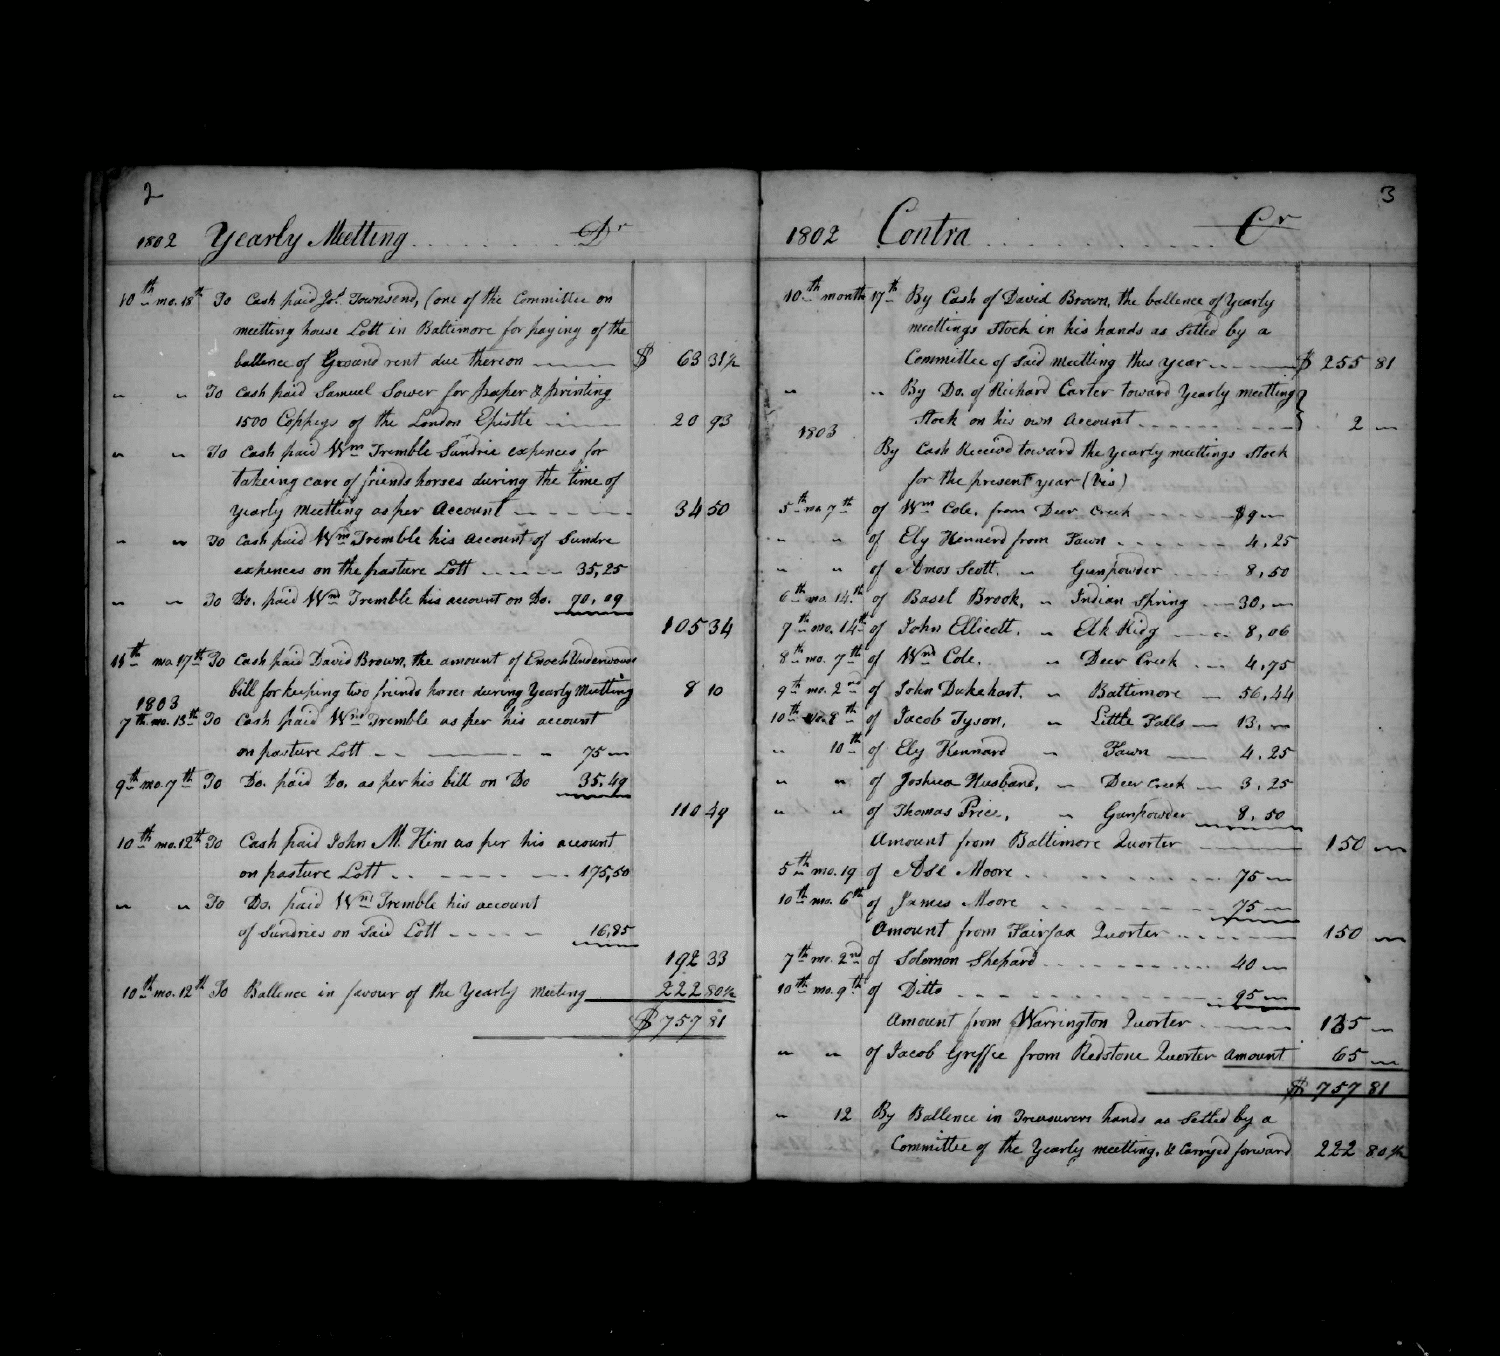 2
1802 Yearly Meetting Dr
10th mo. 18th To Cash paid Jos. Townsend, (one of the Committee on
meetting house Lott in Baltimore for paying of the
ballence of Ground rent due thereon $ 63 31½
" " To Cash paid Samuel Sower for paper & printing
1500 Coppeys of the London Epistle 20 93
" " To Cash paid Wm Tremble Sundrie expences for
takeing care of friends horses dureing the time of
Yearly Meetting as per Account 34 50
" " To Cash paid Wm Tremble his account of Sundre
expences on the pasture Lott 35,25
" " To Do. paid Wm Tremble his account on Do. 70,09
105 34
11th mo. 17th To Cash paid David Brown, the amount of Enoch Underwoods
bill for keeping two friends horses during Yearly Meetting 8 10
1803
7th mo. 13th To Cash paid Wm Tremble as per his account
on pasture Lott 75 "
9th mo. 7th To Do. paid Do. as per his bill on Do 35.49
110 49
10th mo. 12th To Cash paid John M. Kim as per his account
on pasture Lott 175,50
" " To Do. paid Wm Tremble his account
of Sundries on Said Lott 16,85
192 33
10th mo. 12th To Ballence in favour of the Yearly Meeting 222 80½
$ 757 81
3
1802 Contra Cr
10th month 17th By Cash of David Brown, the ballence of Yearly
meettings Stock in his hands as Setled by a
Committee of Said meetting this year $ 255 81
" " By Do. of Richard Carter toward Yearly meetting
Stock on his own Account 2 "
1803
By Cash Receivd toward the yearly meettings Stock
for the present year (Vis)
5th mo. 7th of Wm Cole, from Deer Creek $9 "
" " of Ely Kennerd from Fawn 4,25
" " of Amos Scott. " Gunpowder 8,50
6th mo. 14th of Basel Brook, " Indian Spring 30, "
7th mo. 14th of John Ellicott. " Elk Ridg 8,06
8th mo. 7th of Wm Cole. " Deer Creek 4,75
9th mo. 2nd of John Dukehart. " Baltimore 56,44
10th mo. 8th of Jacob Tyson, " Little Falls 13, "
" 10th of Ely Kennard " Fawn 4.25
" " of Joshua Husband, " Deer Creek 3,25
" " of Thomas Price, " Gunpowder 8,50
Amount from Baltimore Quorter 150 "
5th mo. 19 of Asa Moore 75 "
10th mo. 6th of James Moore 75 "
Amount from Fairfax Quorter 150 "
7th mo. 2nd of Solomon Shepard 40 "
10th mo. 9th of Ditto 95 "
Amount from Warrington Quorter 135 "
" " of Jacob Greffee from Redstone Quorter amount 65 "
$ 757 81
" 12 By Ballence in Treasurers hands as Setled by a
Committee of the Yearly meetting, & Carryed forward 222 80½